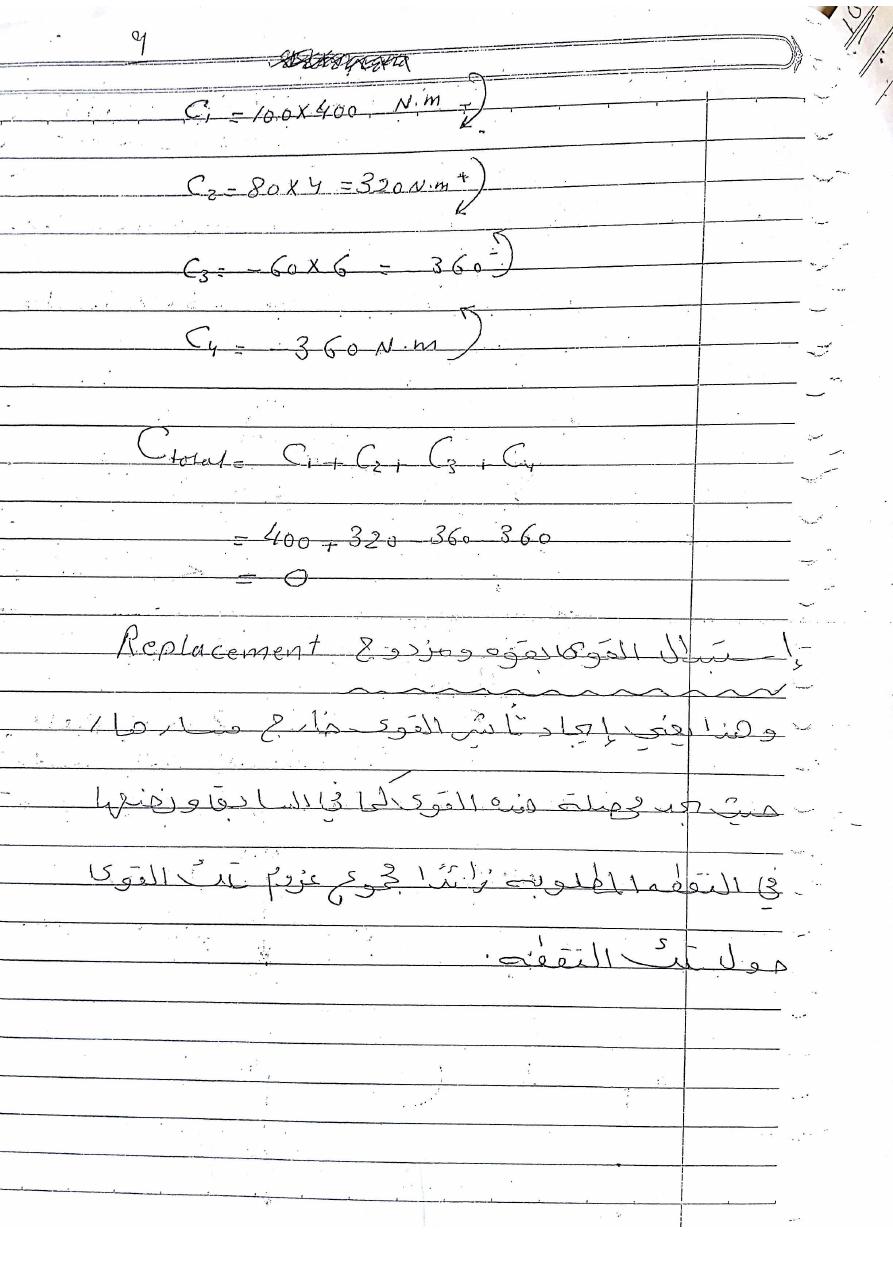 9
C₁ = 100 × 400 N.m +
C₂ = 80 × 4 = 320 N.m +
C₃ = - 60 × 6 = 360 -
C₄ = - 360 N.m
Ctotal = C₁ + C₂ + C₃ + C₄
= 400 + 320 - 360 - 360
= 0
إستبدال القوى بقوه ومزدوج Replacement
وهذا يعني إيجاد تأثير القوى خارج مسارها،
حيث نجد محصلة هذه القوى كما في السابق ونضعها
في النقطه المطلوبه زائدًا مجموع عزوم تلك القوى
حول تلك النقطه.